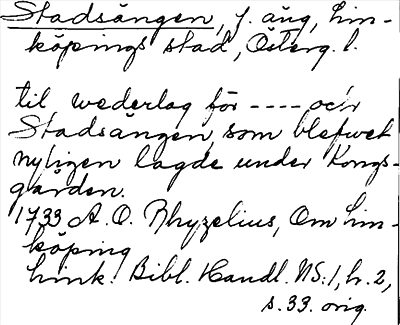 Stadsängen, f. äng, Lin-
köpings stad, Österg. l.
til wederlag för ---- och
Stadsängen, som blefwet
nyligen lagde under Kongs-
gården.
1733 A. O. Rhyzelius, Om Lin-
köping
Link. Bibl. Handl. NS. 1, h. 2,
s. 33. orig.